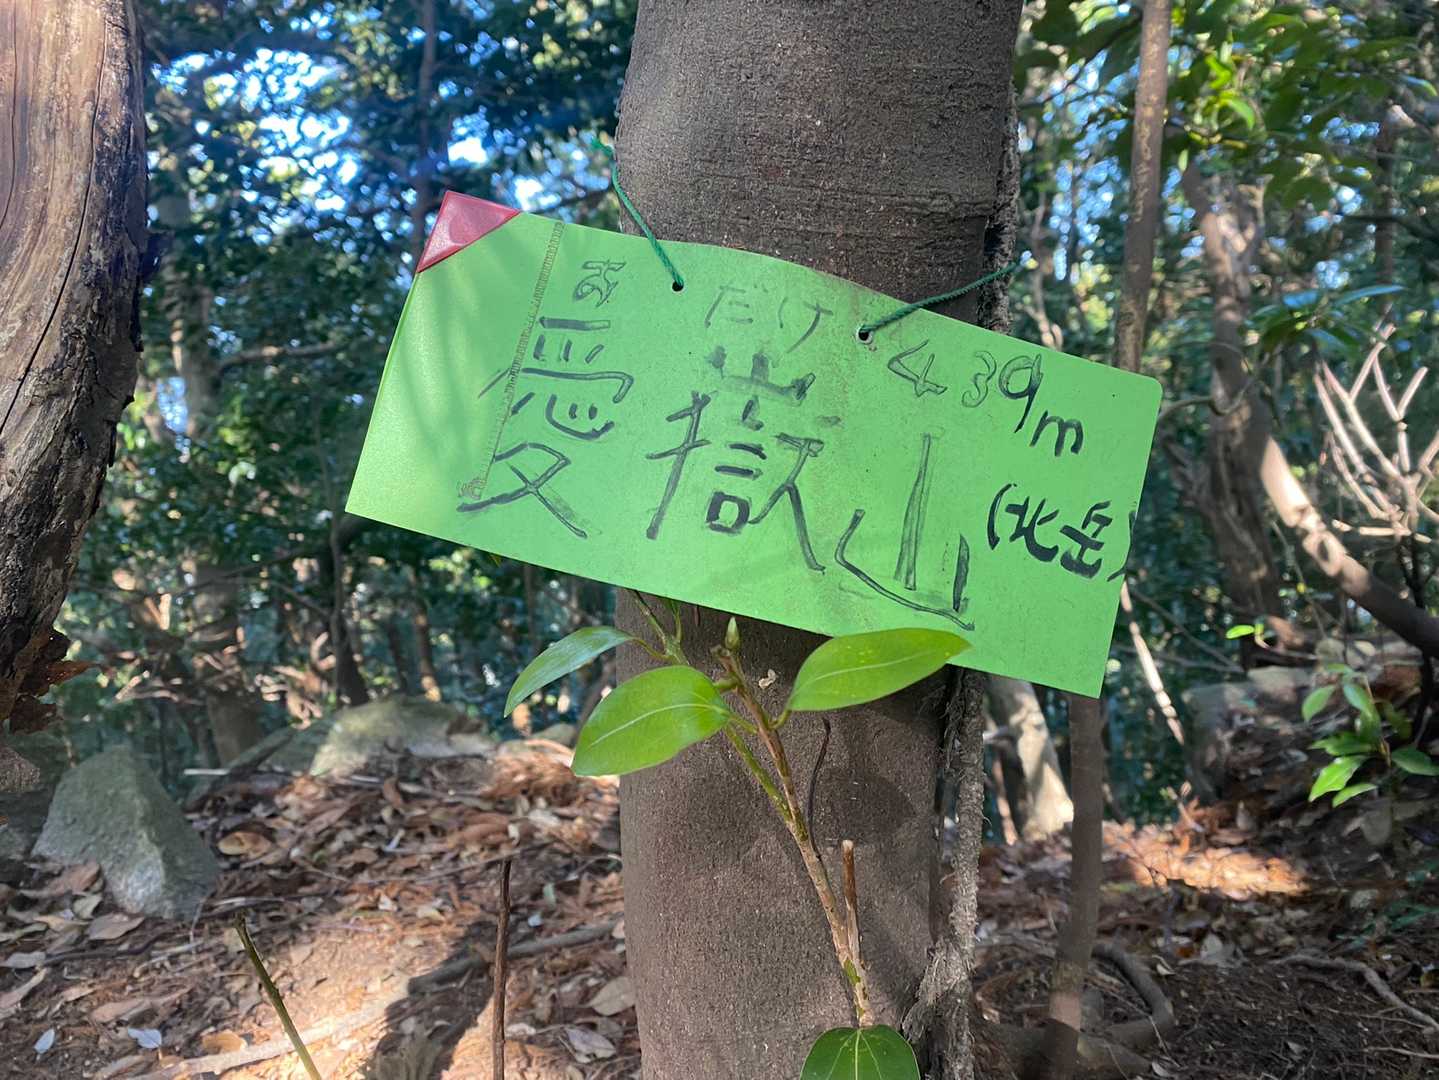 だけ 439m
愛嶽山 (北岳)